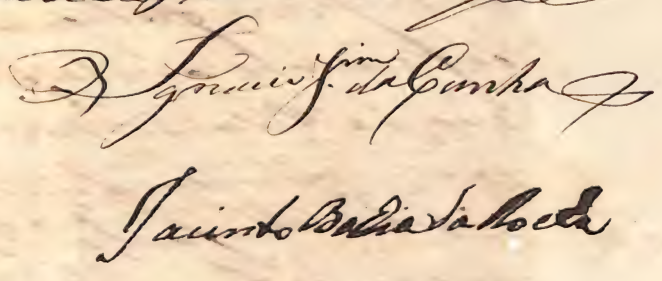 Ignacio Jim. da Cunha
Jacinto Badia da Rocha